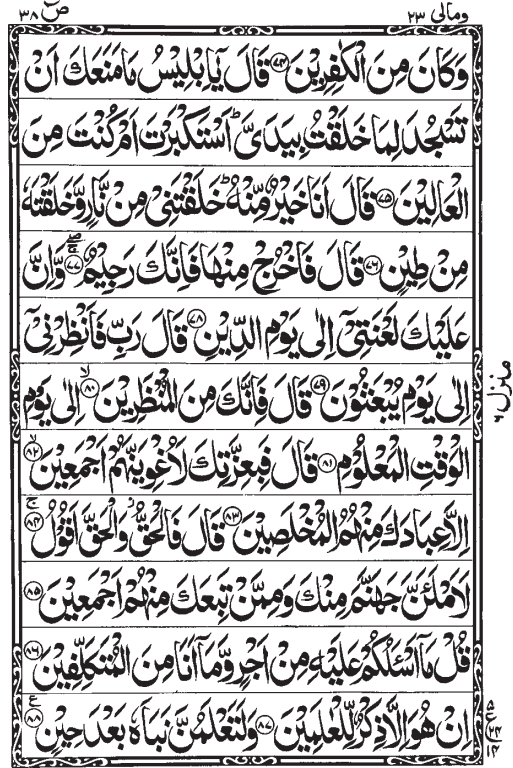 ومالی ۲۳
ص ۳۸
وَكَانَ مِنَ الْكٰفِرِيْنَ ۷۴ قَالَ يٰۤاِبْلِيْسُ مَا مَنَعَكَ اَنْ
تَسْجُدَ لِمَا خَلَقْتُ بِيَدَيَّ ؕ اَسْتَكْبَرْتَ اَمْ كُنْتَ مِنَ
الْعَالِيْنَ ۷۵ قَالَ اَنَا خَيْرٌ مِّنْهُ ؕ خَلَقْتَنِيْ مِنْ نَّارٍ وَّخَلَقْتَهٗ
مِنْ طِيْنٍ ۷۶ قَالَ فَاخْرُجْ مِنْهَا فَاِنَّكَ رَجِيْمٌ ۷۷ وَّاِنَّ
عَلَيْكَ لَعْنَتِيْۤ اِلٰى يَوْمِ الدِّيْنِ ۷۸ قَالَ رَبِّ فَاَنْظِرْنِيْۤ
اِلٰى يَوْمِ يُبْعَثُوْنَ ۷۹ قَالَ فَاِنَّكَ مِنَ الْمُنْظَرِيْنَ ۸۰ اِلٰى يَوْمِ
الْوَقْتِ الْمَعْلُوْمِ ۸۱ قَالَ فَبِعِزَّتِكَ لَاُغْوِيَنَّهُمْ اَجْمَعِيْنَ ۸۲
اِلَّا عِبَادَكَ مِنْهُمُ الْمُخْلَصِيْنَ ۸۳ قَالَ فَالْحَقُّ وَالْحَقَّ اَقُوْلُ ۸۴
لَاَمْلَـَٔنَّ جَهَنَّمَ مِنْكَ وَمِمَّنْ تَبِعَكَ مِنْهُمْ اَجْمَعِيْنَ ۸۵
قُلْ مَاۤ اَسْـَٔلُكُمْ عَلَيْهِ مِنْ اَجْرٍ وَّمَاۤ اَنَا مِنَ الْمُتَكَلِّفِيْنَ ۸۶
اِنْ هُوَ اِلَّا ذِكْرٌ لِّلْعٰلَمِيْنَ ۸۷ وَلَتَعْلَمُنَّ نَبَاَهٗ بَعْدَ حِيْنٍ ۸۸
منزل ۶
۵
ع
۲۴
۱۴